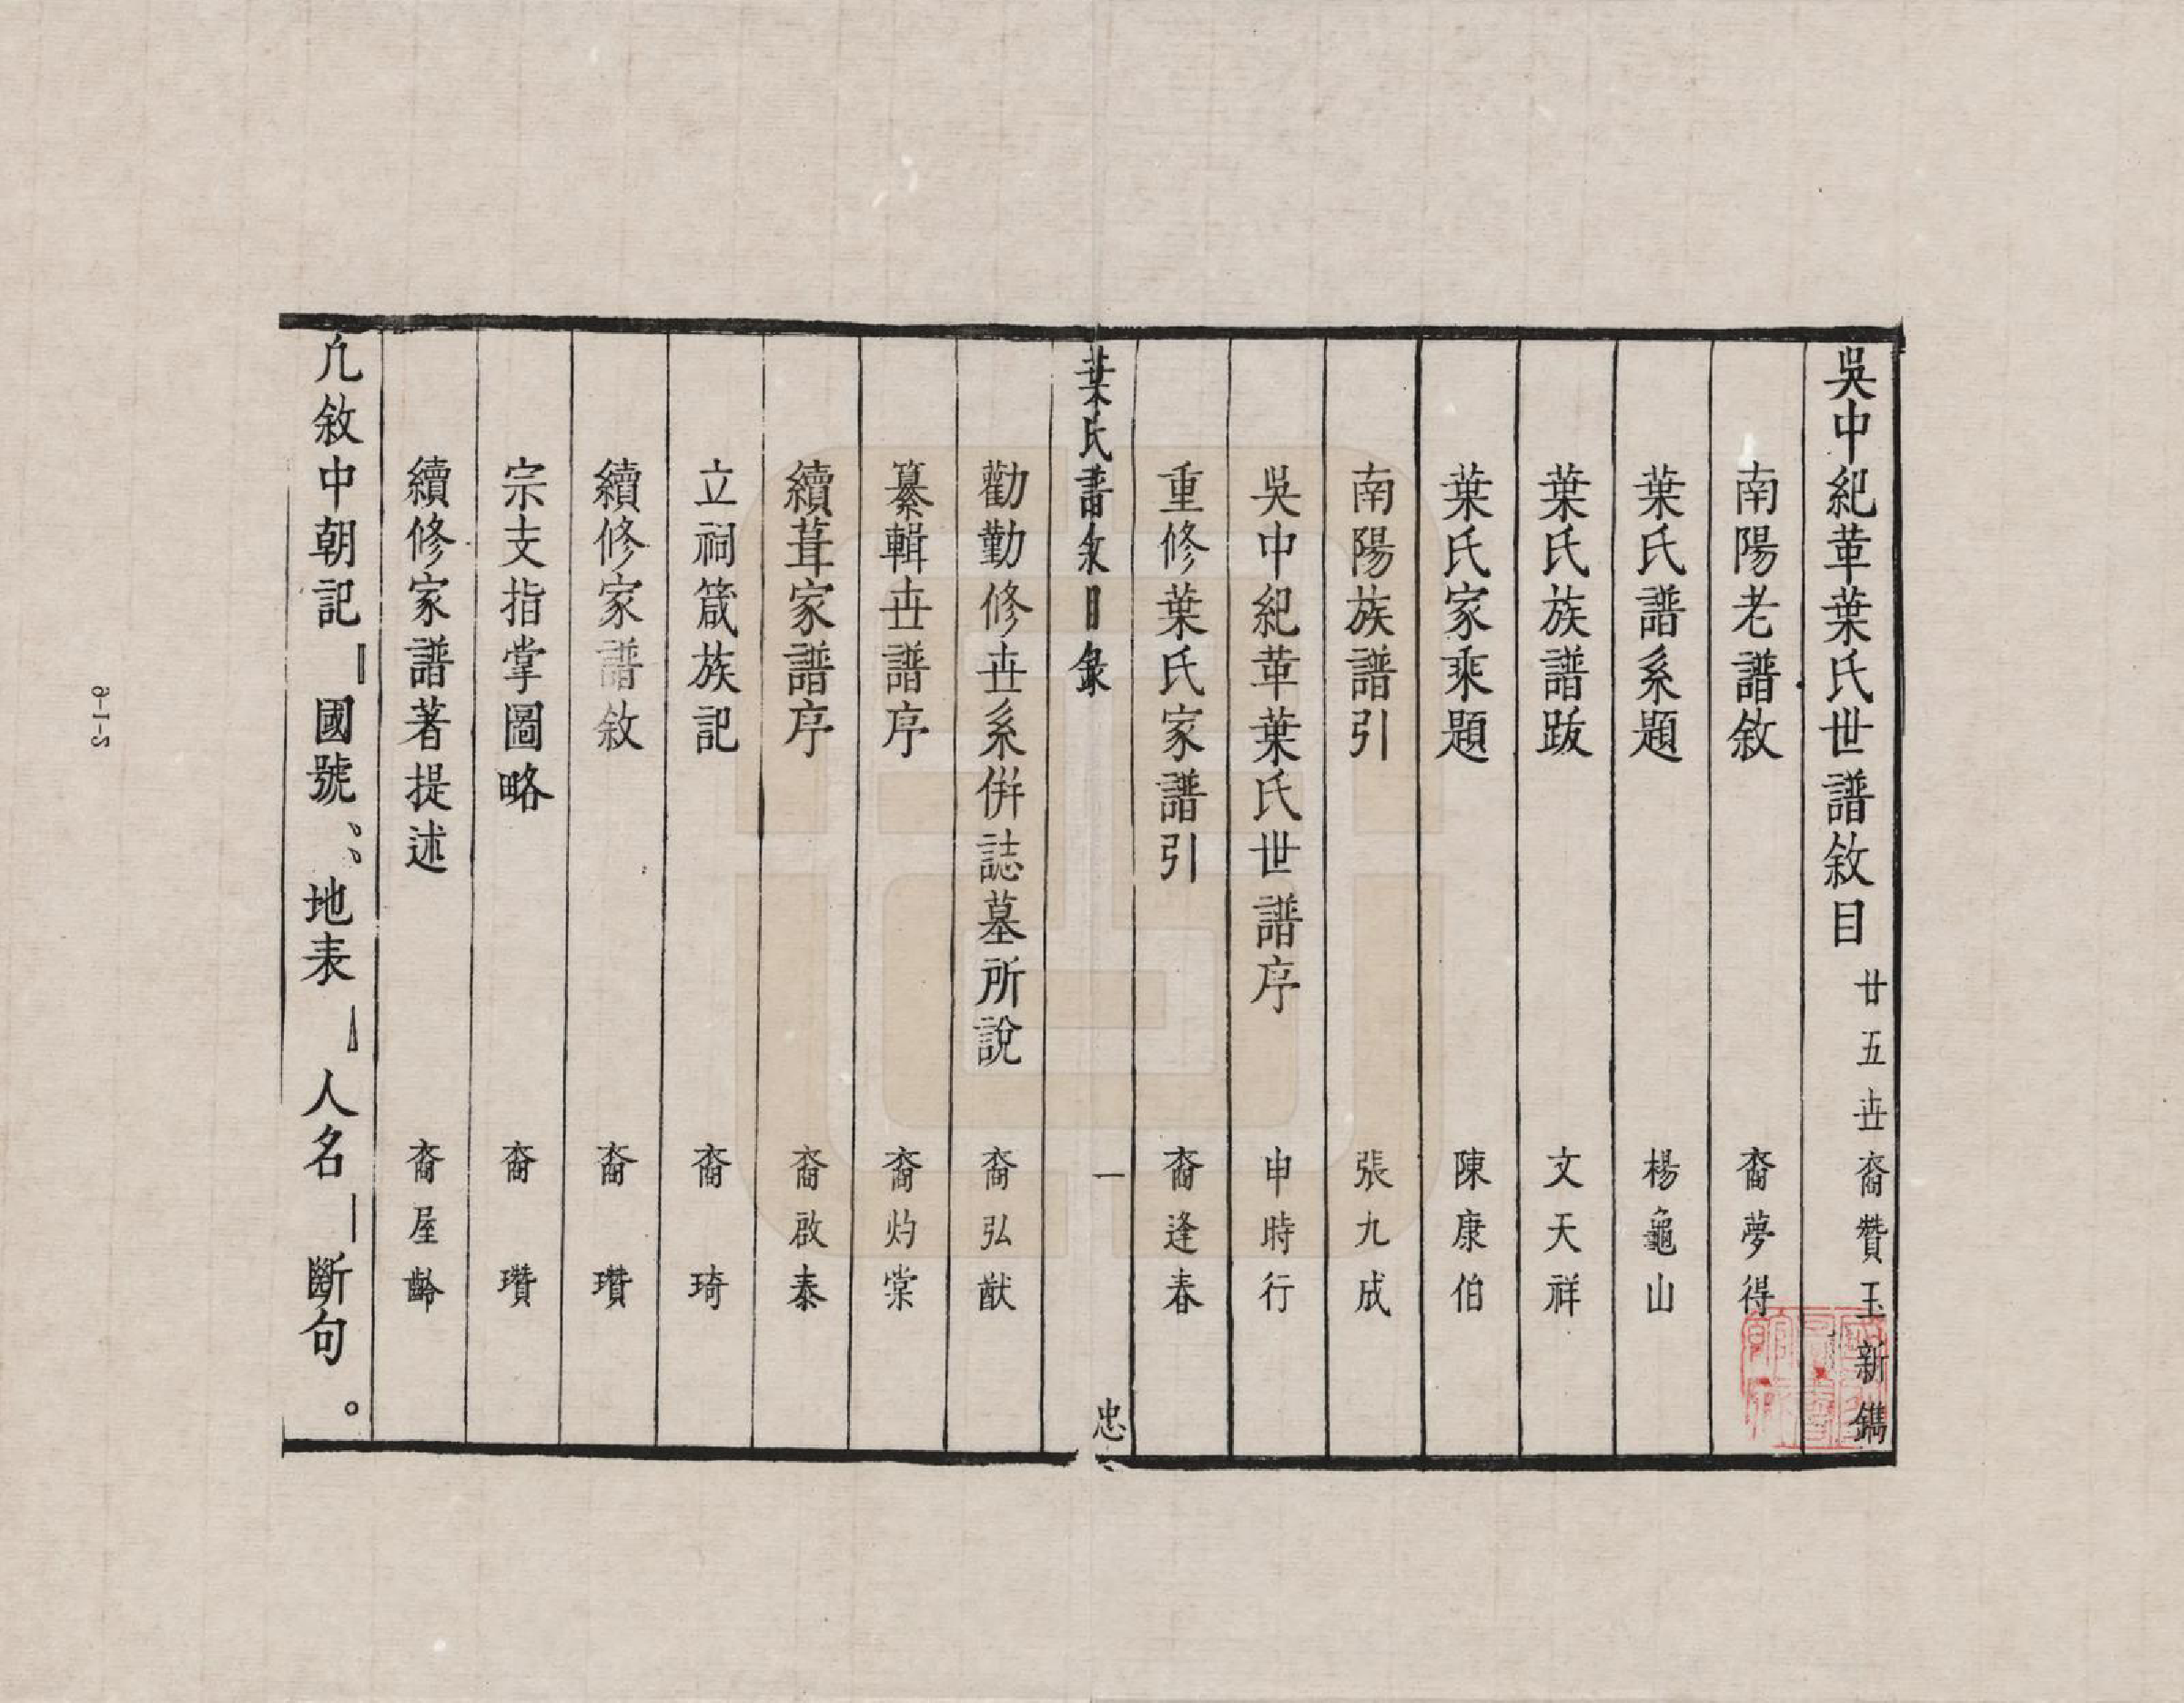 吳中紀革葉氏世譜敘目 廿五世裔贊玉新鐫
南陽老譜敘 裔夢得
葉氏譜系題 楊龜山
葉氏族譜跋 文天祥
葉氏家乘題 陳康伯
南陽族譜引 張九成
吳中紀革葉氏世譜序 申時行
重修葉氏家譜引 裔逢春
葉氏譜敘目錄 一 忠
勸勤修世系併誌墓所說 裔弘猷
纂輯世譜序 裔灼棠
續葺家譜序 裔啟泰
立祠箴族記 裔琦
續修家譜敘 裔瓚
宗支指掌圖略 裔瓚
續修家譜著提述 裔屋齡
凡敘中朝記 國號 地表 人名 斷句。
6-1-2